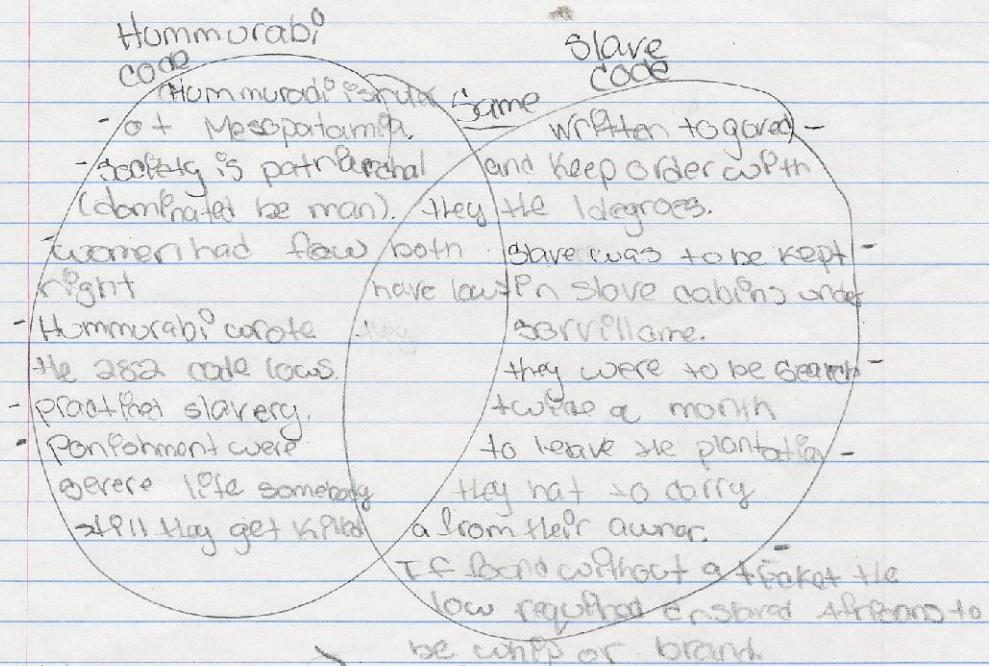 Hummurabi
code
Hummuradi is ruler
- of Mesopatamia.
- society is patriarchal
(dominated be man).
- women had few
right
- Hummurabi wrote
the 282 code laws.
- practines slavery.
- Ponishment were
severe life somebody
still they get killed
Same
they
both
have law
they
Slave
code
written to gared -
and keep order with
the
slave was to be kept -
in slave cabins under
sorvillame.
they were to be search -
twice a month
to leave the plantation -
they hat to carry
a from their awner.
-
If found without a ticket the
low required Enslaved Africans to
be whip or brand.